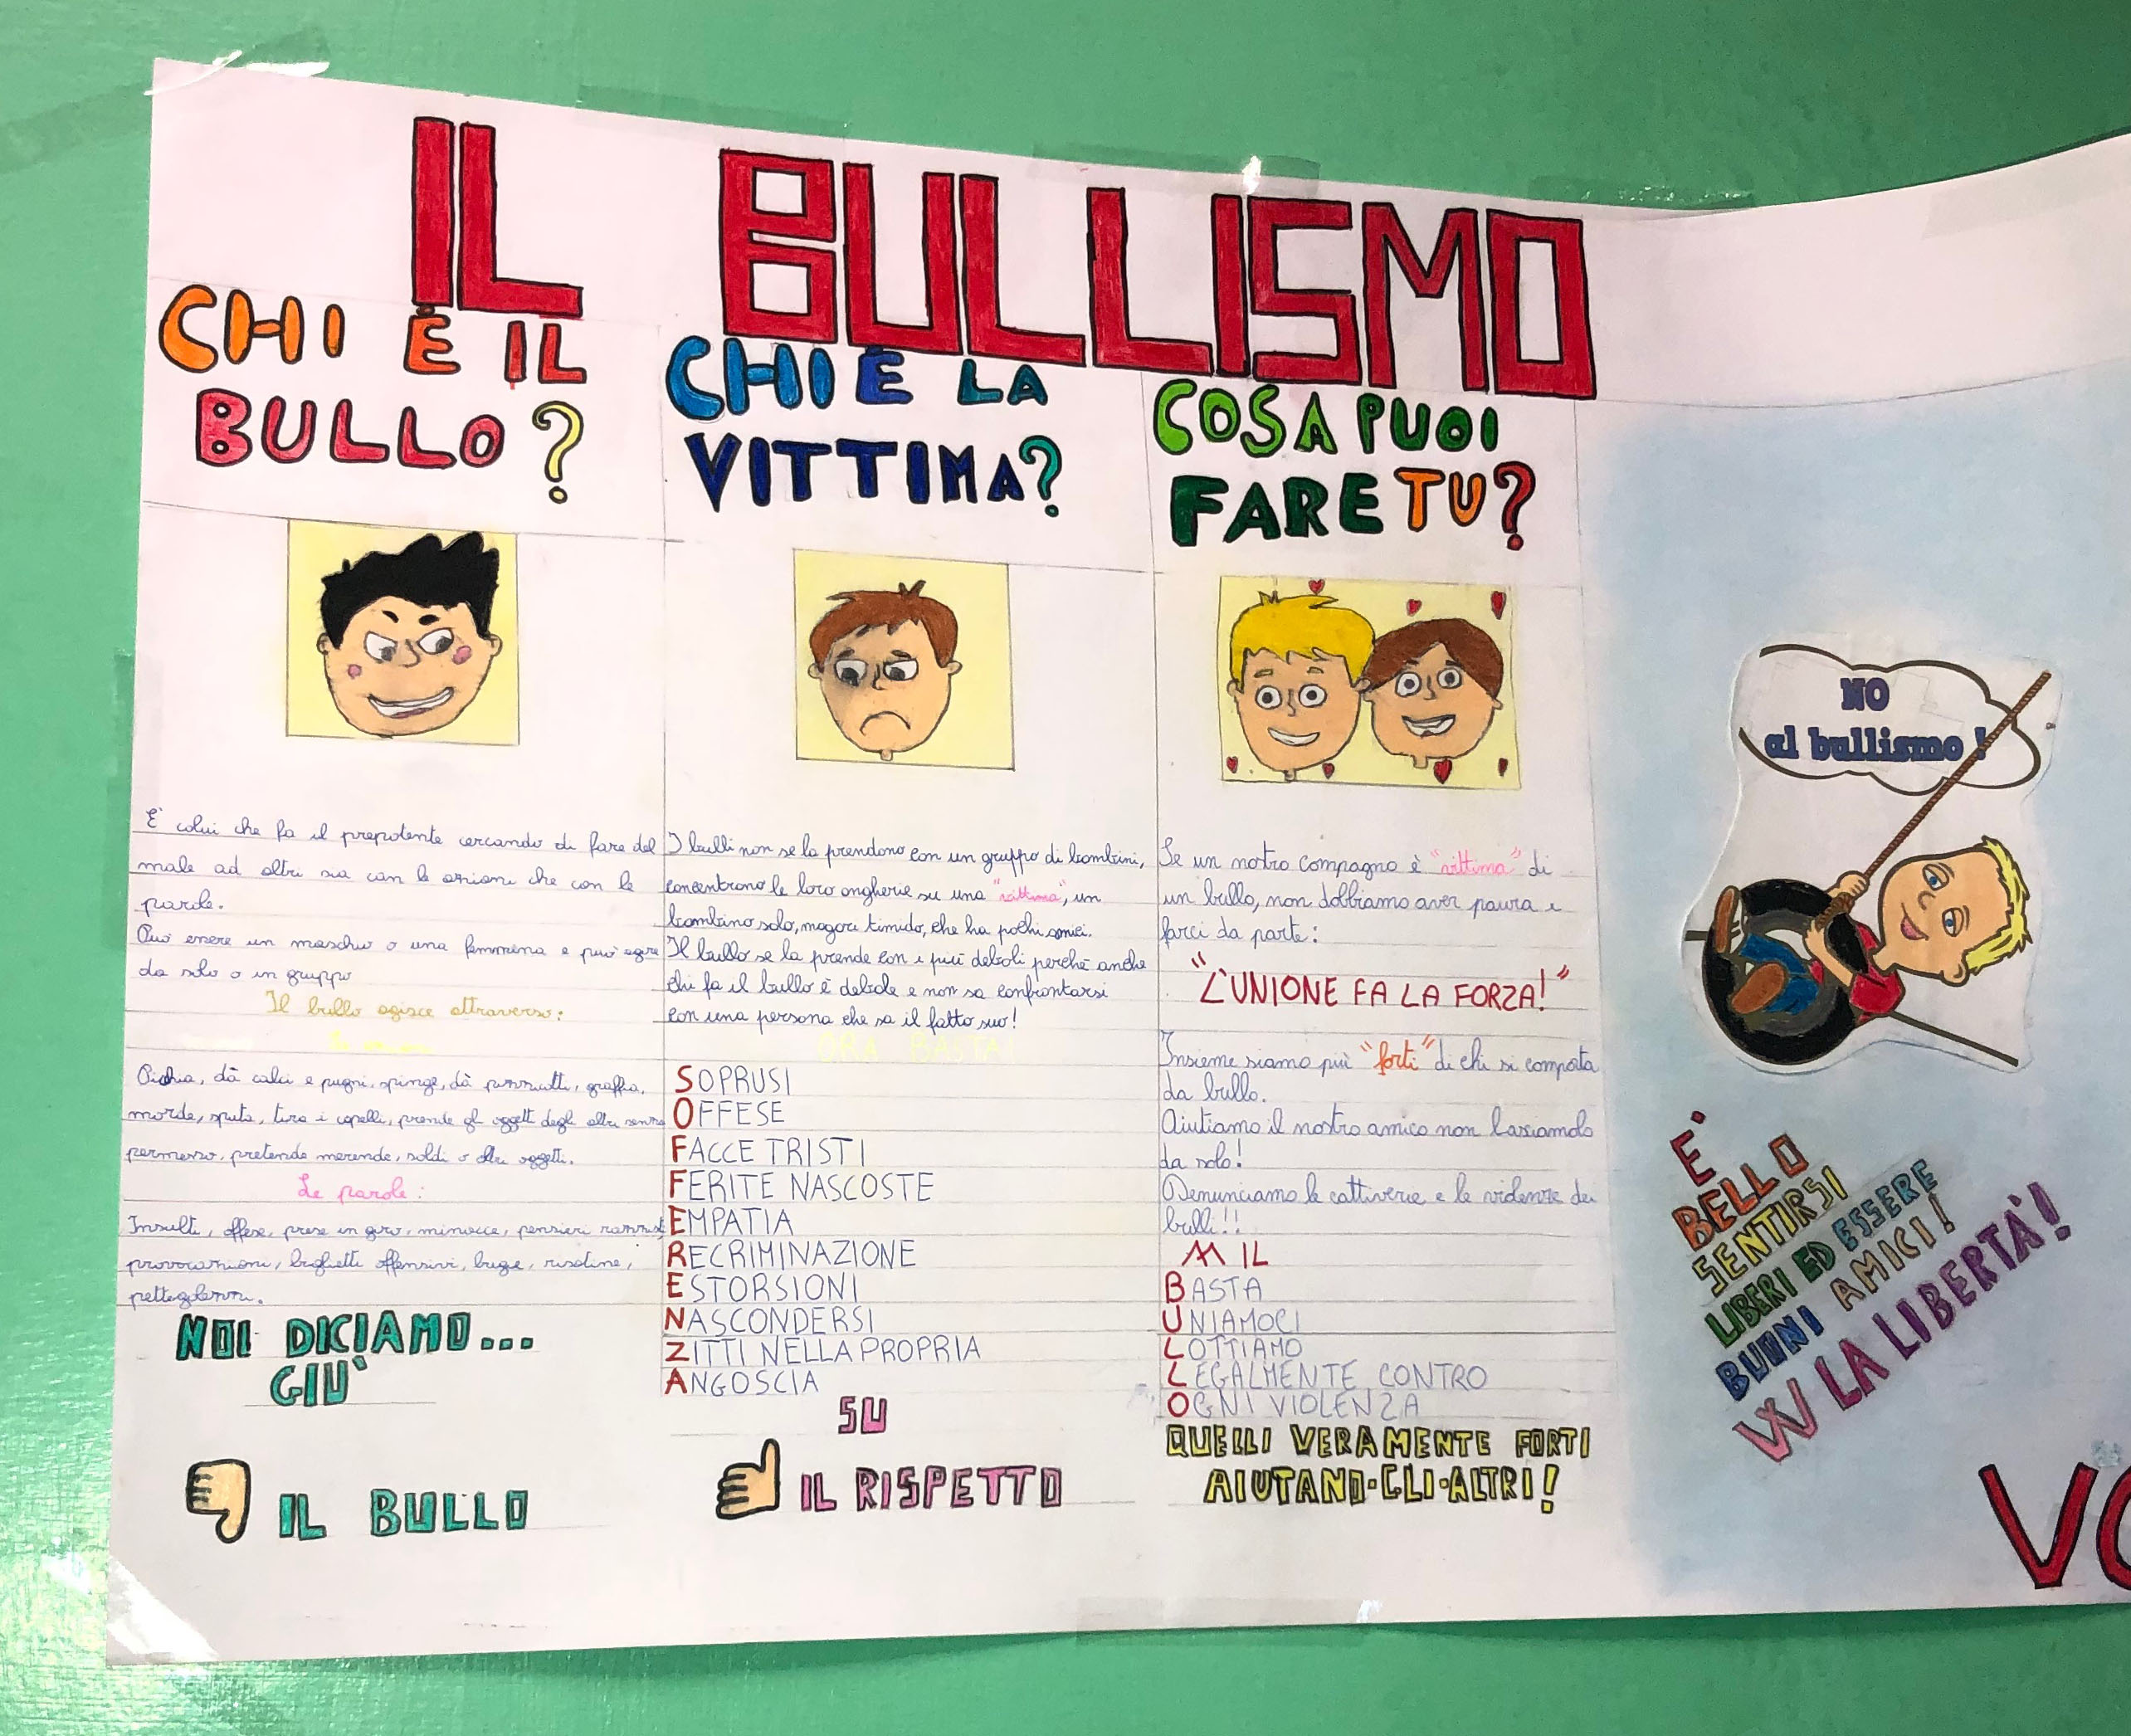 IL BULLISMO
CHI È IL
BULLO?
È colui che fa il prepotente cercando di fare del
male ad altri sia con le azioni che con le
parole.
Può essere un maschio o una femmina e può agire
da solo o in gruppo
Il bullo agisce attraverso:
Le azioni
Picchia, dà calci e pugni, spinge, dà pizzicotti, graffia,
morde, sputa, tira i capelli, prende gli oggetti degli altri senza
permesso, pretende merende, soldi o altri oggetti.
Le parole:
Insulti, offese, prese in giro, minacce, pensieri razzisti,
provocazioni, biglietti offensivi, bugie, risatine,
pettegolezzi.
NOI DICIAMO...
GIÙ
IL BULLO
CHI È LA
VITTIMA?
I bulli non se la prendono con un gruppo di bambini,
concentrano le loro angherie su una "vittima", un
bambino solo, magari timido, che ha pochi amici.
Il bullo se la prende con i più deboli perché anche
chi fa il bullo è debole e non sa confrontarsi
con una persona che sa il fatto suo!
ORA BASTA!
SOPRUSI
OFFESE
FACCE TRISTI
FERITE NASCOSTE
EMPATIA
RECRIMINAZIONE
ESTORSIONI
NASCONDERSI
ZITTI NELLA PROPRIA
ANGOSCIA
SU
IL RISPETTO
COSA PUOI
FARE TU?
Se un nostro compagno è "vittima" di
un bullo, non dobbiamo aver paura e
farci da parte:
"L'UNIONE FA LA FORZA!"
Insieme siamo più "forti" di chi si comporta
da bullo.
Aiutiamo il nostro amico non lasciamolo
da solo!
Denunciamo le cattiverie e le violenze dei
bulli!!
IL
BASTA
UNIAMOCI
LOTTIAMO
LEGALMENTE CONTRO
OGNI VIOLENZA
QUELLI VERAMENTE FORTI
AIUTANO·GLI·ALTRI!
NO
al bullismo!
E'
BELLO
SENTIRSI
LIBERI ED ESSERE
BUONI AMICI!
W LA LIBERTÀ!